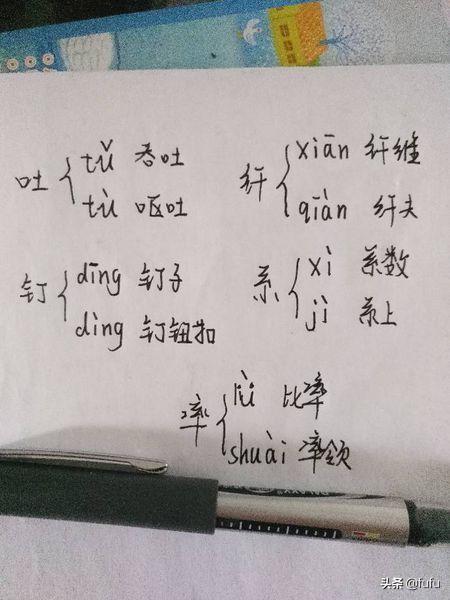 吐 tǔ 吞吐
tù 呕吐
纤 xiān 纤维
qiàn 纤夫
钉 dīng 钉子
dìng 钉钮扣
系 xì 系数
jì 系上
率 lǜ 比率
shuài 率领
头条 @fufu